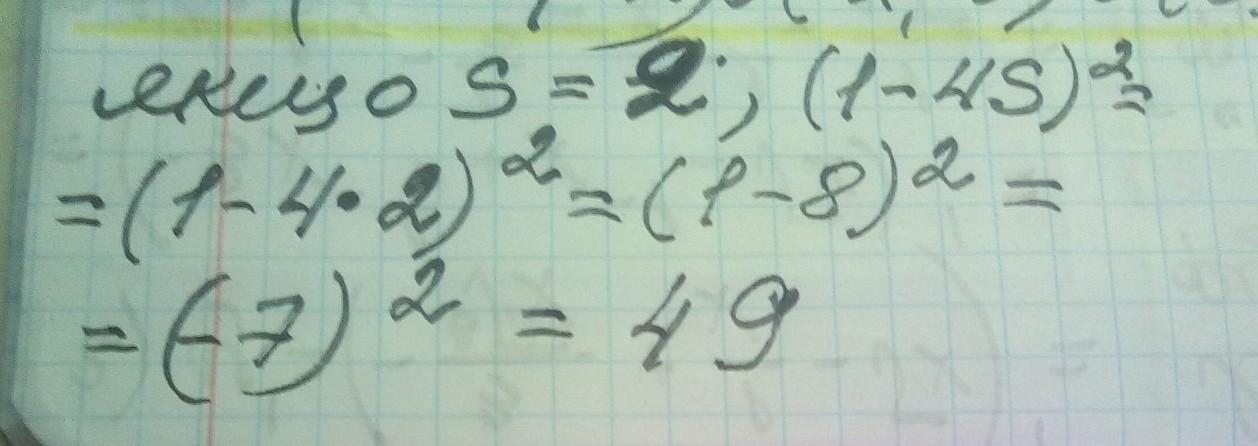 якщо S = 2; (1 - 4S)² =
= (1 - 4 • 2)² = (1 - 8)² =
= (-7)² = 49